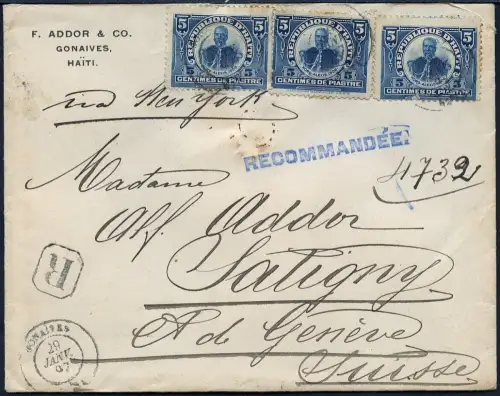 F. ADDOR & CO.
GONAIVES,
HAÏTI.
5 REPUBLIQUE D'HAITI 5
5 5
CENTIMES DE PIASTRE
5 REPUBLIQUE D'HAITI 5
5 5
CENTIMES DE PIASTRE
5 REPUBLIQUE D'HAITI 5
5 5
CENTIMES DE PIASTRE
via New York
RECOMMANDÉE.
4732
Madame
Alf. Addor
Satigny
Ct de Genève
Suisse
R
GONAIVES
29
JANV.
07